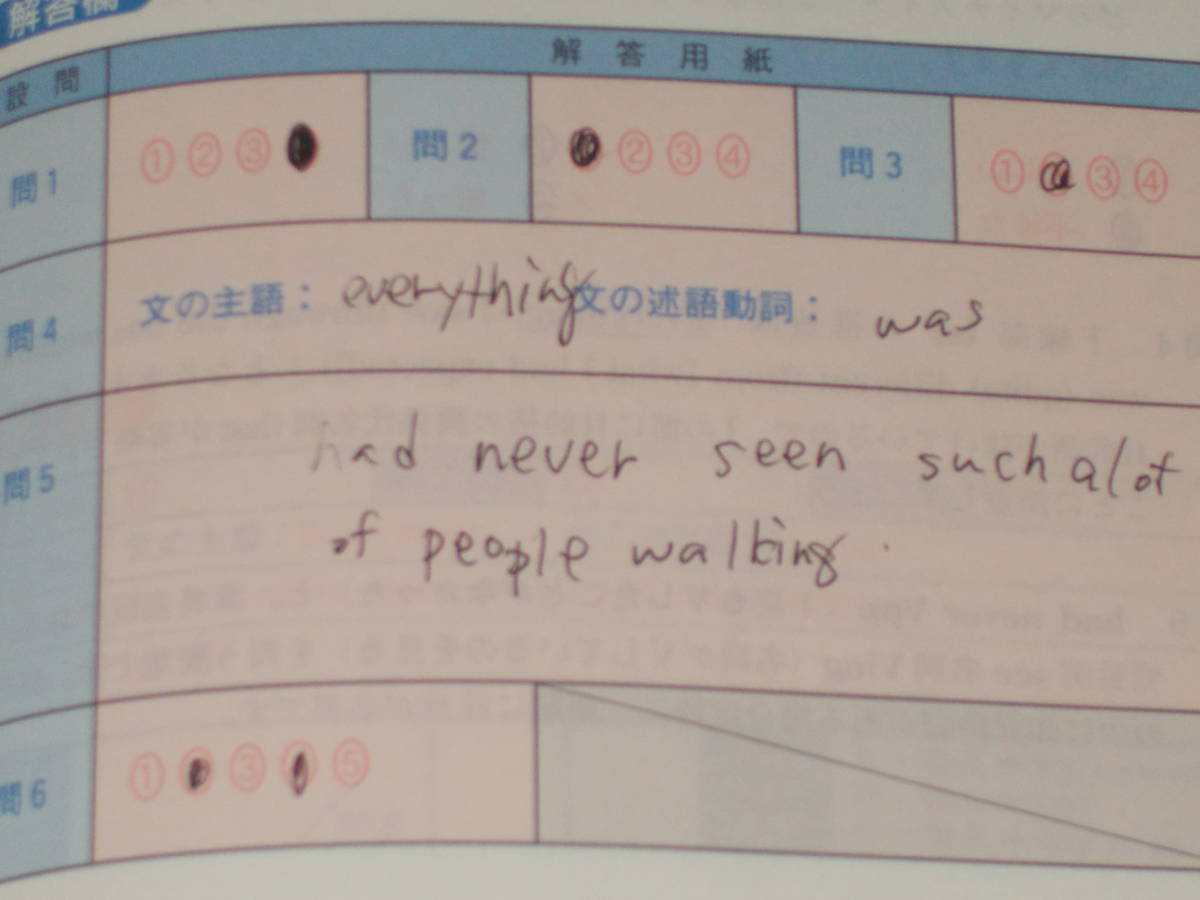 解答欄
設問 解答用紙
問1 ① ② ③ 問2 ② ③ ④ 問3 ① ③ ④
問4 文の主語： everything 文の述語動詞： was
問5 had never seen such a lot
of people walking.
問6 ① ③ ⑤